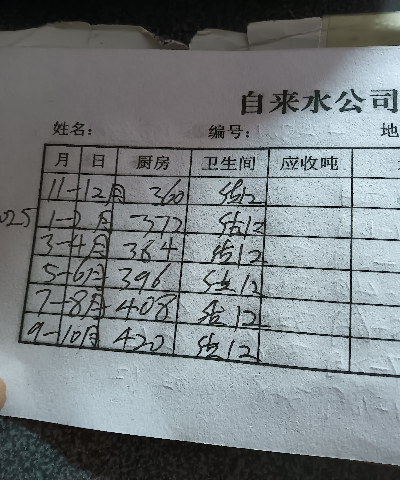 自来水公司
姓名： 编号： 地
月 日 厨房 卫生间 应收吨
11-12月 360 结12
2025 1-2月 372 结12
3-4月 384 结12
5-6月 396 结12
7-8月 408 结12
9-10月 420 结12